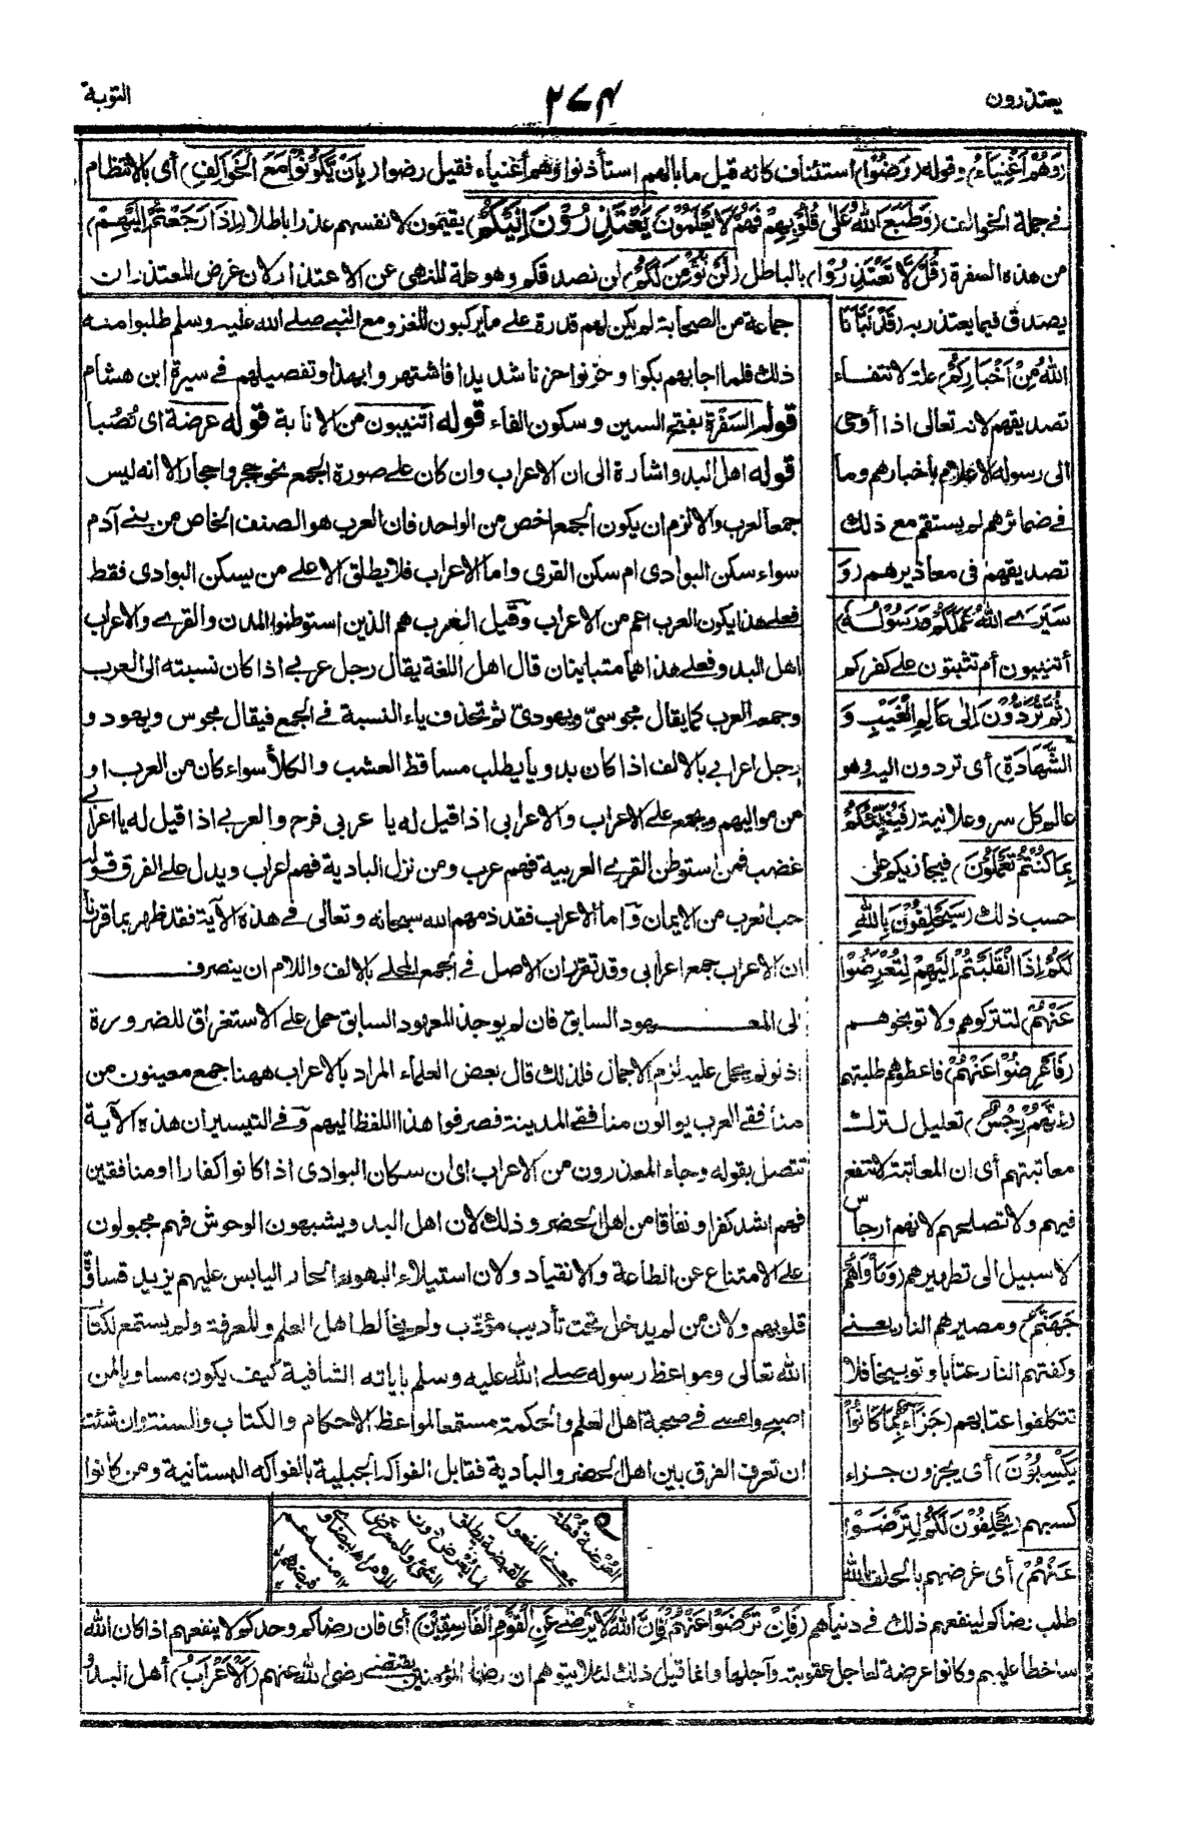 يعتذرون
٢٧٤
التوبة
(وَهُمْ أَغْنِيَاءُ) وقوله (رَضُوْا) استئناف كانه قيل ما بالهم استأذنوا وهم أغنياء فقيل رضوا (بِأَنْ يَّكُوْنُوْا مَعَ الْخَوَالِفِ) أى بالانتظام
فى جملة الخوالف (وَطَبَعَ اللهُ عَلٰى قُلُوْبِهِمْ فَهُمْ لَا يَعْلَمُوْنَ يَعْتَذِرُوْنَ اِلَيْكُمْ) يقيمون لانفسهم عذرا باطلا (اِذَا رَجَعْتُمْ اِلَيْهِمْ)
من هذه السفرة (قُلْ لَّا تَعْتَذِرُوْا) بالباطل (لَنْ نُّؤْمِنَ لَكُمْ) لن نصدقكم وهو علة للنهى عن الاعتذار لان غرض المعتذر ان
يصدق فيما يعتذر به (قَدْ نَبَّأَنَا
اللهُ مِنْ أَخْبَارِكُمْ) علة لانتفاء
تصديقهم لانه تعالى اذا أوحى
الى رسوله الاعلام بأخبارهم وما
فى ضمائرهم لم يستقم مع ذلك
تصديقهم فى معاذيرهم (وَ
سَيَرَى اللهُ عَمَلَكُمْ وَرَسُوْلُهُ)
أتنيبون أم تثبتون على كفركم
(ثُمَّ تُرَدُّوْنَ اِلٰى عَالِمِ الْغَيْبِ وَ
الشَّهَادَةِ) أى تردون اليه وهو
عالم كل سر وعلانية (فَيُنَبِّئُكُمْ
بِمَا كُنْتُمْ تَعْمَلُوْنَ) فيجازيكم على
حسب ذلك (سَيَحْلِفُوْنَ بِاللهِ
لَكُمْ اِذَا انْقَلَبْتُمْ اِلَيْهِمْ لِتُعْرِضُوْا
عَنْهُمْ) لتتركوهم ولا توبخوهم
(فَأَعْرِضُوْا عَنْهُمْ) فاعطوهم طلبتهم
(اِنَّهُمْ رِجْسٌ) تعليل لترك
معاتبتهم أى ان المعاتبة لا تنفع
فيهم ولا تصلحهم لانهم ارجاس
لا سبيل الى تطهيرهم (وَمَأْوَاهُمْ
جَهَنَّمُ) ومصيرهم النار يعنى
وكفتهم النار عتابا وتوبيخا فلا
تتكلفوا عتابهم (جَزَاءً بِمَا كَانُوْا
يَكْسِبُوْنَ) أى يجزون جزاء
كسبهم (يَحْلِفُوْنَ لَكُمْ لِتَرْضَوْا
عَنْهُمْ) أى غرضهم بالحلف بالله
جماعة من الصحابة لم يكن لهم قدرة على ما يركبون للغزو مع النبى صلى الله عليه وسلم طلبوا منه
ذلك فلما اجابهم بكوا وحزنوا حزنا شديدا فاشتهروا بهذا وتفصيلهم فى سيرة ابن هشام
قوله السَفْرَة بفتح السين وسكون الفاء قوله اتنيبون من الانابة قوله عرضة اى نُصُبا
قوله اهل البدو اشارة الى ان الاعراب وان كان على صورة الجمع نحو حجر واحجار الا انه ليس
جمعا لعرب والا لزم ان يكون الجمع اخص من الواحد فان العرب هو الصنف الخاص من بنى آدم
سواء سكن البوادى ام سكن القرى واما الاعراب فلا يطلق الا على من يسكن البوادى فقط
فعلى هذا يكون العرب اعم من الاعراب وقيل العرب هم الذين استوطنوا المدن والقرى والاعراب
اهل البدو فعلى هذا هما متباينان قال اهل اللغة يقال رجل عربى اذا كان نسبته الى العرب
وجمعه العرب كما يقال مجوسىّ ويهودىّ ثم تحذف ياء النسبة فى الجمع فيقال مجوس ويهود و
رجل اعرابى بالالف اذا كان بدويا يطلب مساقط العشب والكلأ سواء كان من العرب او
من مواليهم ويجمع على الاعراب والاعرابى اذا قيل له يا عربى فرح والعربى اذا قيل له يا اعرابى
غضب فمن استوطن القرى العربية فهم عرب ومن نزل البادية فهم اعراب ويدل على الفرق قوله
حب العرب من الايمان وأما الاعراب فقد ذمهم الله سبحانه وتعالى فى هذه الآية فقد ظهر بما قرنا
ان الاعراب جمع اعرابى وقد تقرر ان الاصل فى الجمع المحلى بالالف واللام ان ينصرف
الى المعهود السابق فان لم يوجد المعهود السابق حمل على الاستغراق للضرورة
اذ لو لم يحمل عليه لزم الاجمال فلذلك قال بعض العلماء المراد بالاعراب ههنا جمع معينون من
منافقى العرب يوالون منافقى المدينة فصرفوا هذا اللفظ اليهم وفى التيسير ان هذه الآية
تتصل بقوله وجاء المعذرون من الاعراب اى ان سكان البوادى اذا كانوا كفارا او منافقين
فهم اشد كفرا ونفاقا من اهل الحضر وذلك لان اهل البدو يشبهون الوحوش فهم مجبولون
على الامتناع عن الطاعة والانقياد ولان استيلاء الهواء الحار اليابس عليهم يزيد قساوة
قلوبهم ولان من لم يدخل تحت تأديب مؤدّب ولم يخالط اهل العلم والمعرفة ولم يستمع لكتاب
الله تعالى ومواعظ رسوله صلى الله عليه وسلم بآياته الشافية كيف يكون مساويا لمن
اصبح وامسى فى صحبة اهل العلم والحكمة مستمعا لمواعظ الاحكام والكتاب والسنة وان شئت
ان تعرف الفرق بين اهل الحضر والبادية فقابل الفواكه الجبلية بالفواكه البستانية ومن كانوا
العُرْضة فُعْلة
بمعنى المفعول
كالقبضة يطلق
لما يعرض دون
الشئ وللمعرض
للامر اه بيضاوى
طلب رضاكم لينفعهم ذلك فى دنياهم (فَاِنْ تَرْضَوْا عَنْهُمْ فَاِنَّ اللهَ لَا يَرْضٰى عَنِ الْقَوْمِ الْفَاسِقِيْنَ) أى فان رضاكم وحدكم لا ينفعهم اذا كان الله
ساخطا عليهم وكانوا عرضة لعاجل عقوبته وآجلها وانما قيل ذلك لئلا يتوهم ان رضا المؤمنين يقتضى رضى الله عنهم (اَلْاَعْرَابُ) أهل البدو